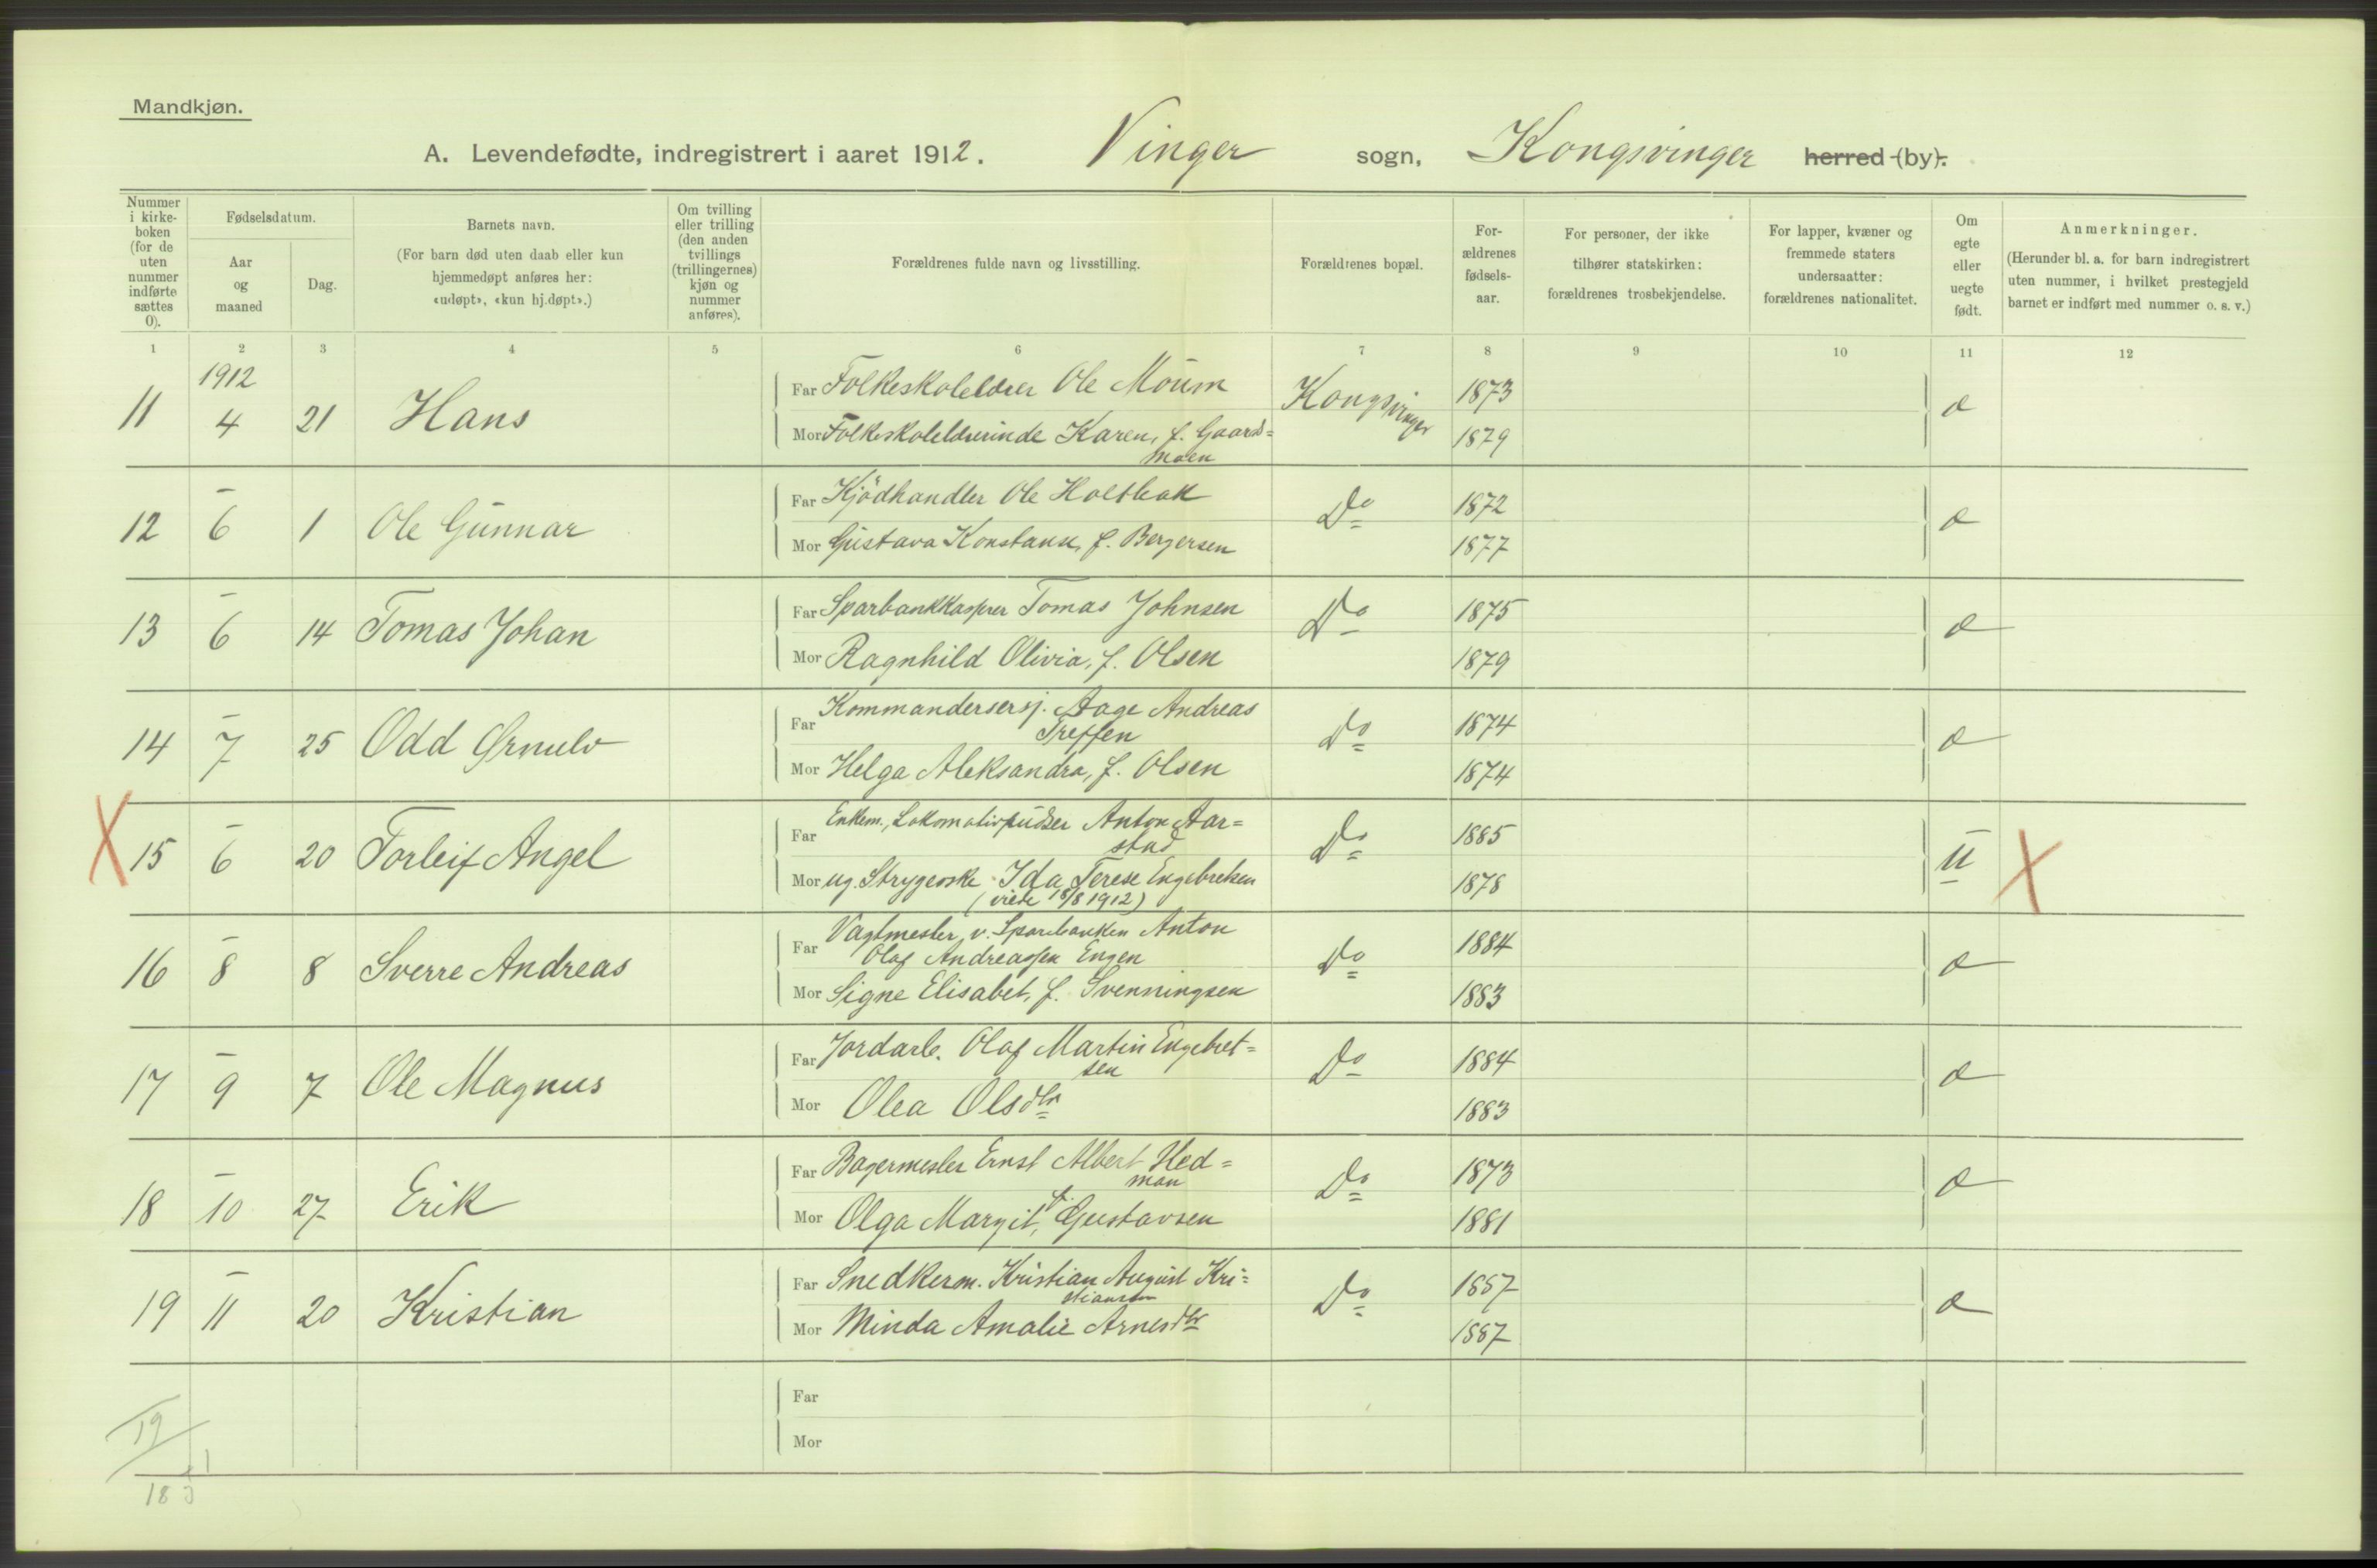 Mandkjøn.
A. Levendefødte, indregistrert i aaret 1912. Vinger sogn, Kongsvinger herred (by).
Nummer i kirke-boken (for de uten nummer indførte sættes 0).
Fødselsdatum.
Aar og maaned
Dag.
Barnets navn.
(For barn død uten daab eller kun hjemmedøpt anføres her: «udøpt», «kun hj.døpt».)
Om tvilling eller trilling (den anden tvillings (trillingernes) kjøn og nummer anføres).
Forældrenes fulde navn og livsstilling.
Forældrenes bopæl.
For-ældrenes fødsels-aar.
For personer, der ikke tilhører statskirken: forældrenes trosbekjendelse.
For lapper, kvæner og fremmede staters undersaatter: forældrenes nationalitet.
Om egte eller uegte født.
Anmerkninger.
(Herunder bl. a. for barn indregistrert uten nummer, i hvilket prestegjeld barnet er indført med nummer o. s. v.)
1 2 3 4 5 6 7 8 9 10 11 12
1912
11 4 21 Hans
Far Folkeskolelærer Ole Moum Kongsvinger 1873 æ
Mor Folkeskolelærerinde Karen, f. Gaards=
moen 1879
12 – 6 1 Ole Gunnar
Far Kjødhandler Ole Holtbak Do 1872 æ
Mor Gustava Konstanse, f. Bergersen 1877
13 – 6 14 Tomas Johan
Far Sparbankkasserer Tomas Johnsen Do 1875 æ
Mor Ragnhild Olivia, f. Olsen 1879
14 – 7 25 Odd Ørnulv
Far Kommandersersj. Aage Andreas
Treffen Do 1874 æ
Mor Helga Aleksandra, f. Olsen 1874
X 15 – 6 20 Torleif Angel
Far Enkem., Lokomotivpudser Anton Aar=
stad Do 1885 u X
Mor ug. Strygerske Ida Terese Engebretsen
(viede 18/8 1912) 1878
16 – 8 8 Sverre Andreas
Far Vagtmester v. Sparebanken Anton
Olaf Andreassen Engen Do 1884 æ
Mor Signe Elisabet, f. Svenningsen 1883
17 – 9 7 Ole Magnus
Far Jordarb. Olaf Martin Engebret=
sen Do 1884 æ
Mor Olea Olsdtr 1883
18 – 10 27 Erik
Far Bagermester Ernst Albert Hed=
man Do 1873 æ
Mor Olga Margit, f. Gustavsen 1881
19 – 11 20 Kristian
Far Snedkerm. Kristian August Kri=
stiansen Do 1887 æ
Mor Minda Amalie Arnesdtr 1887
Far
Mor
19
1
18